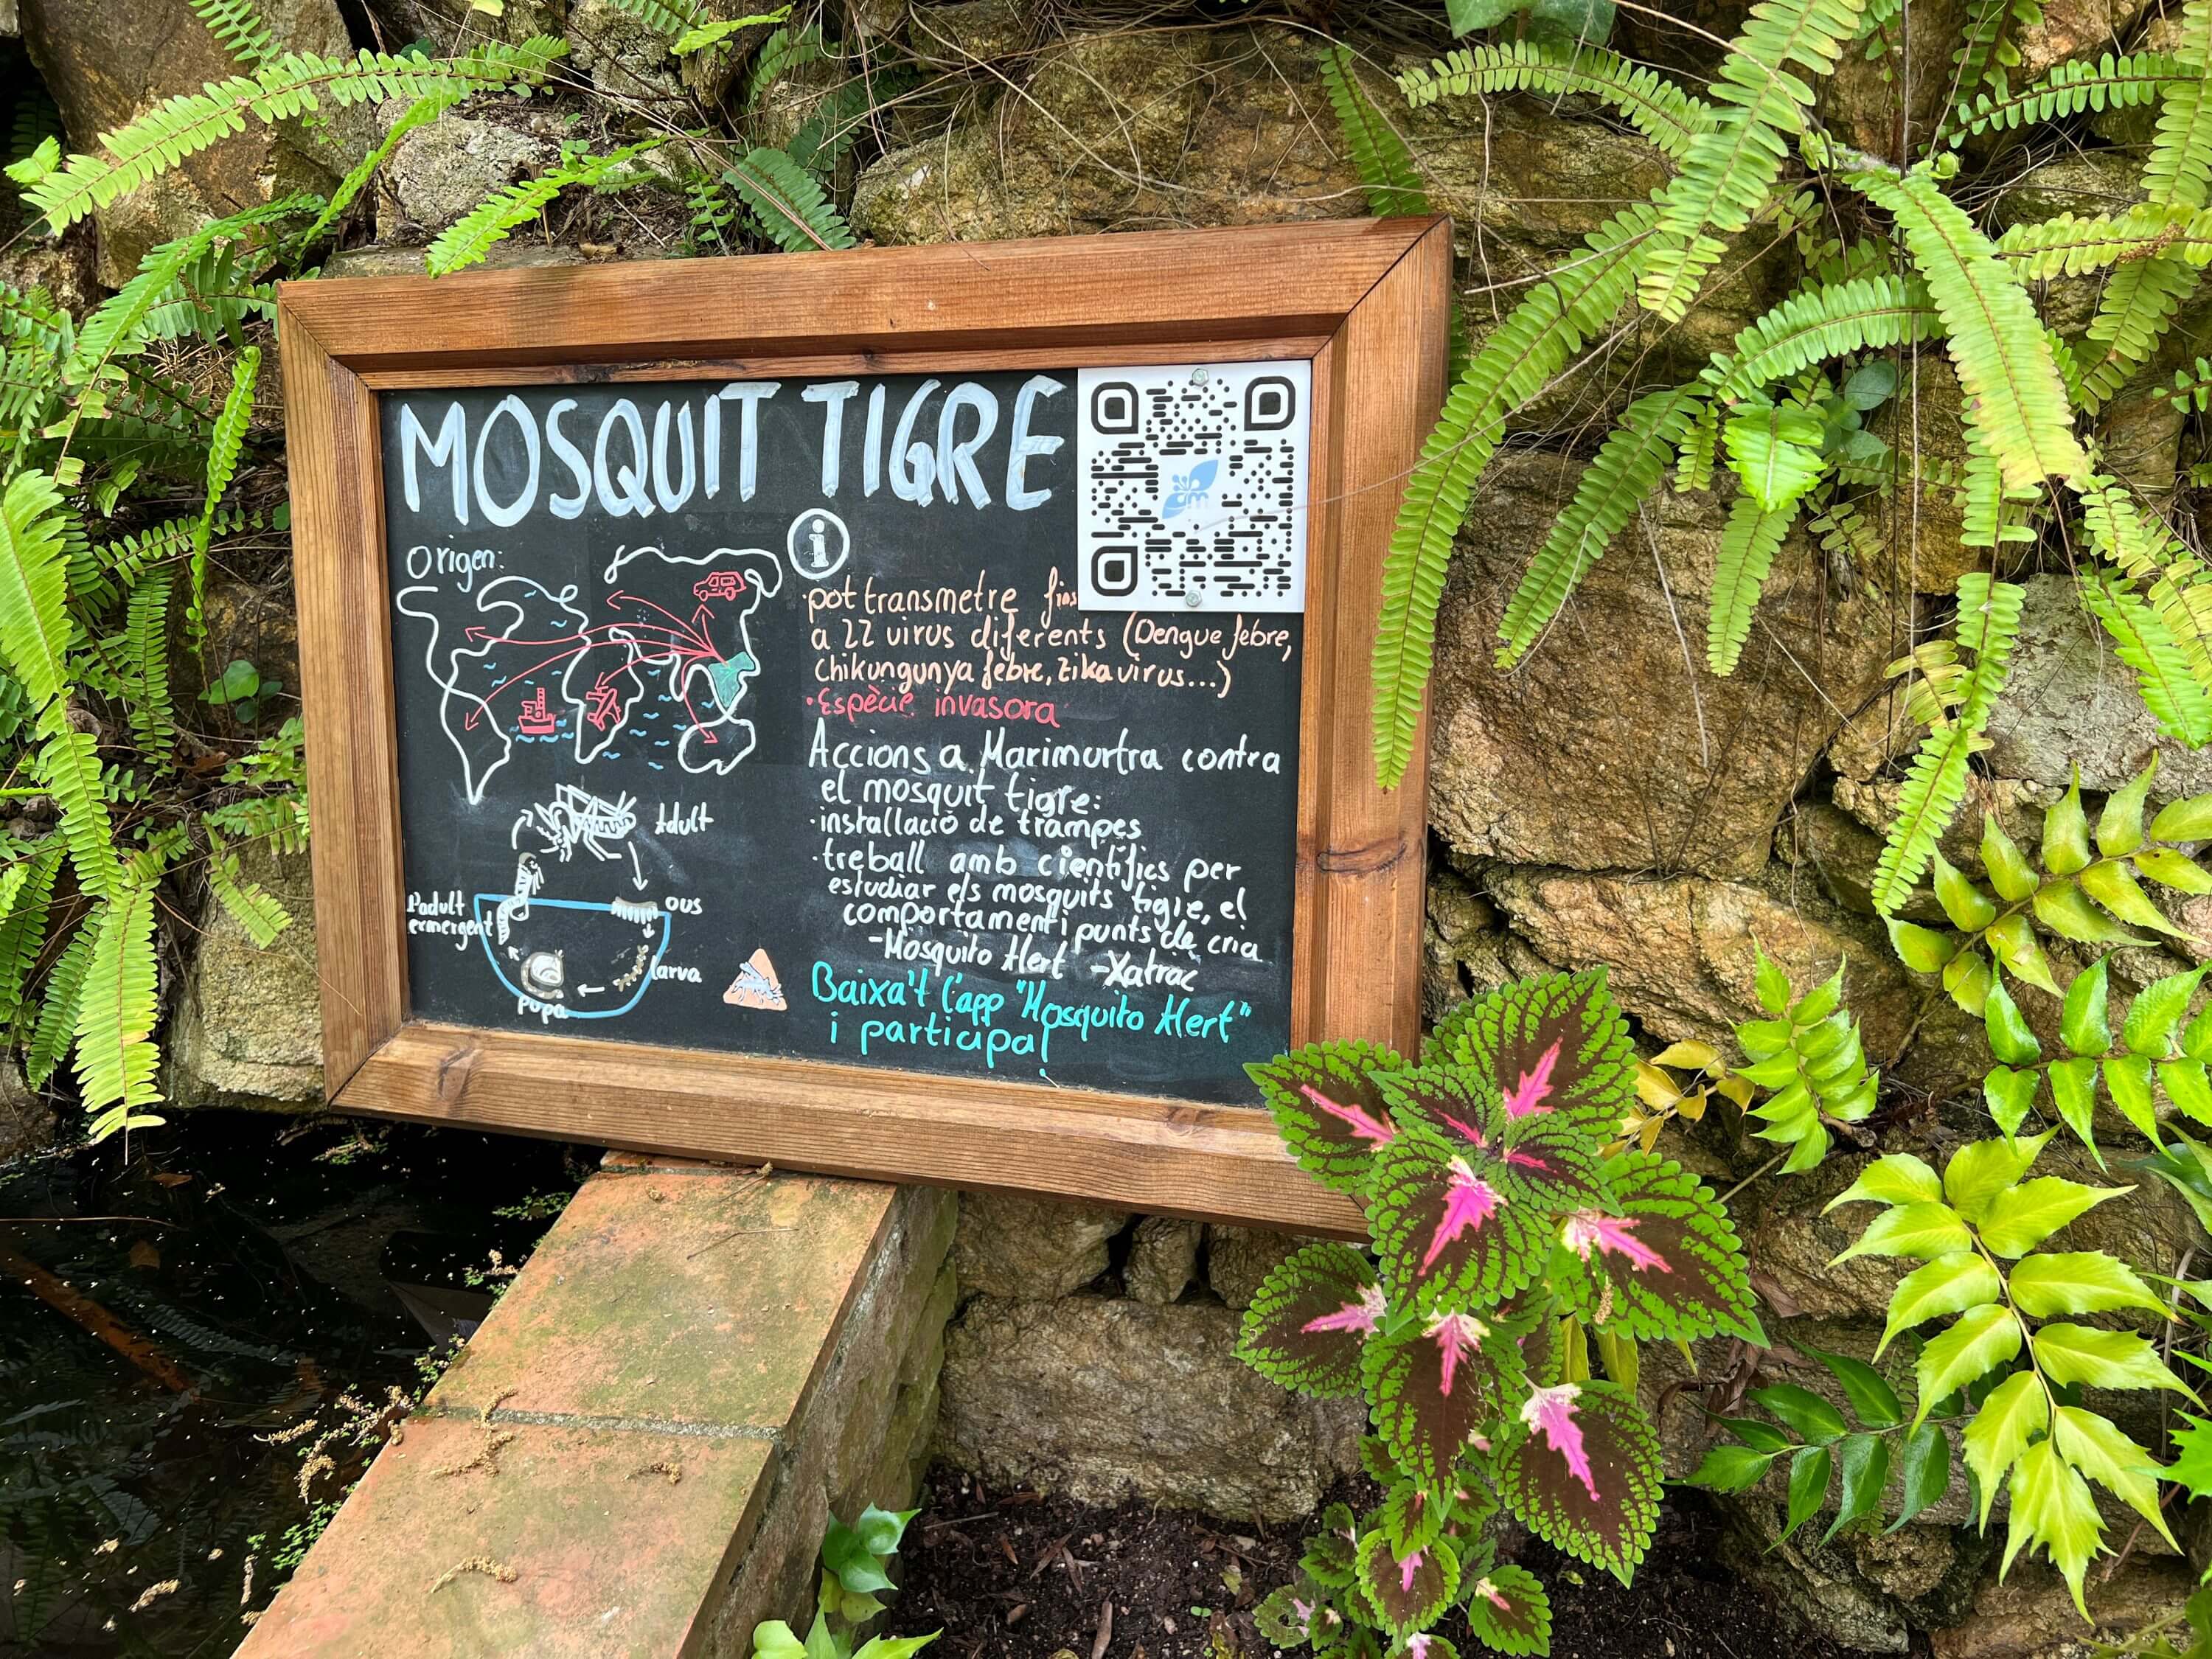 MOSQUIT TIGRE
Origen:
i
·pot transmetre fins
a 22 virus diferents (Dengue febre,
chikungunya febre, zika virus...)
·Espècie invasora
Accions a Marimurtra contra
el mosquit tigre:
·instal·lació de trampes
·treball amb científics per
estudiar els mosquits tigre, el
comportament i punts de cria
-Mosquito Alert -Xatrac
Baixa't l'app "Mosquito Alert"
i participa!
Adult
ous
larva
pupa
l'adult
emergent